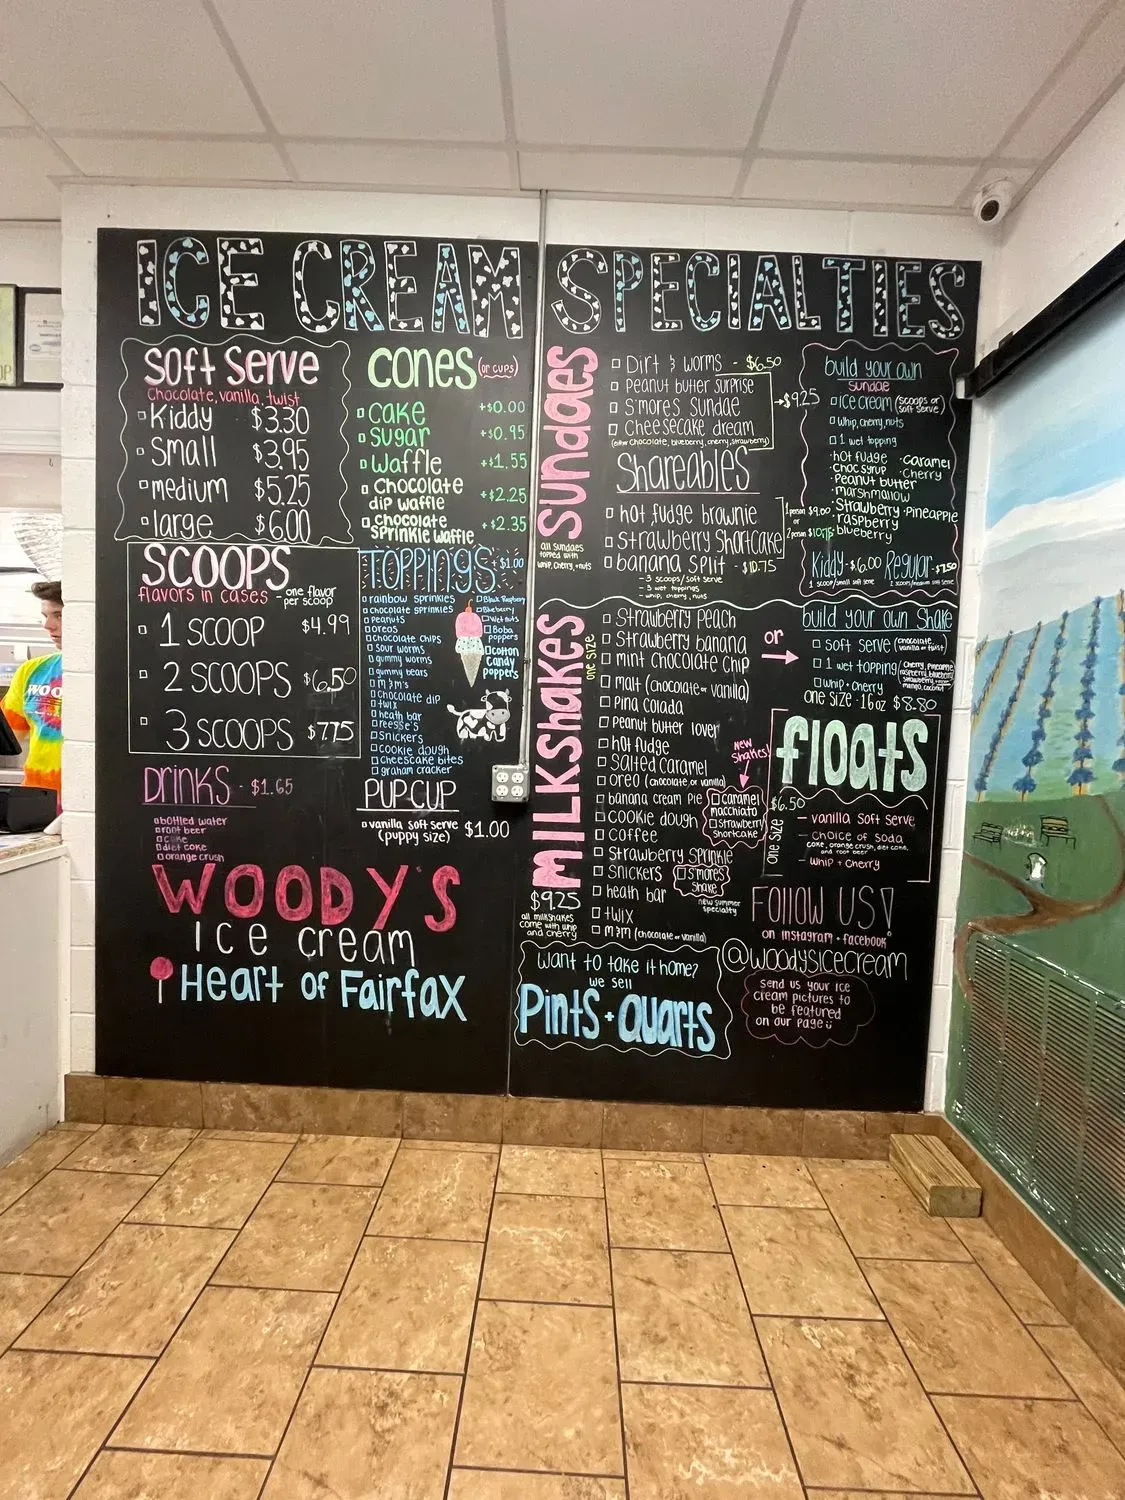 ICE CREAM SPECIALTIES
Soft Serve
Chocolate, vanilla, twist
Kiddy $3.30
Small $3.95
medium $5.25
large $6.00
CONES (or cups)
Cake +$0.00
Sugar +$0.95
Waffle +$1.55
Chocolate
dip waffle +$2.25
Chocolate
Sprinkle waffle +$2.35
SCOOPS
flavors in cases - one flavor
per scoop
1 SCOOP $4.99
2 SCOOPS $6.50
3 SCOOPS $7.75
TOPPINGS +$1.00
rainbow sprinkles
chocolate sprinkles
Peanuts
oreos
chocolate chips
sour worms
gummy worms
gummy bears
m&m's
chocolate dip
twix
heath bar
reese's
snickers
cookie dough
cheesecake bites
graham cracker
Black Raspberry
Blueberry
Wet nuts
Boba
poppers
cotton
candy
poppers
Drinks - $1.65
bottled water
root beer
coke
diet coke
orange crush
PUP CUP
vanilla soft serve $1.00
(puppy size)
WOODY'S
Ice cream
Heart of Fairfax
Sundaes
all sundaes
topped with
whip, cherry, + nuts
Dirt & worms - $6.50
Peanut butter surprise
S'mores Sundae $9.25
Cheesecake dream
(either chocolate, blueberry, cherry, strawberry)
Shareables
hot fudge brownie
Strawberry Shortcake
1 person $9.00
or
2 person $10.75
banana split - $10.75
- 3 scoops/soft serve
- 3 wet toppings
- whip, cherry, nuts
build your own
sundae
ICE cream (scoops or
soft serve)
Whip, cherry, nuts
1 wet topping
·hot fudge ·Caramel
·Choc syrup ·Cherry
·Peanut butter
·marshmallow
·Strawberry ·Pineapple
·raspberry
·blueberry
Kiddy-$6.00 Regular-$7.50
1 scoop/small soft serve
MILKShakes
one size
$9.25
all milkshakes
come with whip
and cherry
Strawberry Peach
Strawberry banana
mint chocolate chip
malt (chocolate or vanilla)
Pina Colada
Peanut butter lover
hot fudge
Salted Caramel
oreo (chocolate or vanilla)
banana cream pie
cookie dough
coffee
Strawberry Sprinkle
Snickers
heath bar
twix
m&m (chocolate or vanilla)
or
new
shakes!
caramel
macchiato
Strawberry
Shortcake
S'mores
Shake
new summer
specialty
build your own Shake
soft serve (chocolate,
vanilla or twist)
1 wet topping
whip + cherry
one size · 16 oz $8.80
floats
$6.50
one size
- vanilla soft serve
- choice of soda
coke, orange crush, diet coke,
and root beer
- whip + cherry
Follow us!
on instagram + facebook
@woodysicecream
send us your ice
cream pictures to
be featured
on our page
Want to take it home?
we sell
Pints + Quarts
WOO